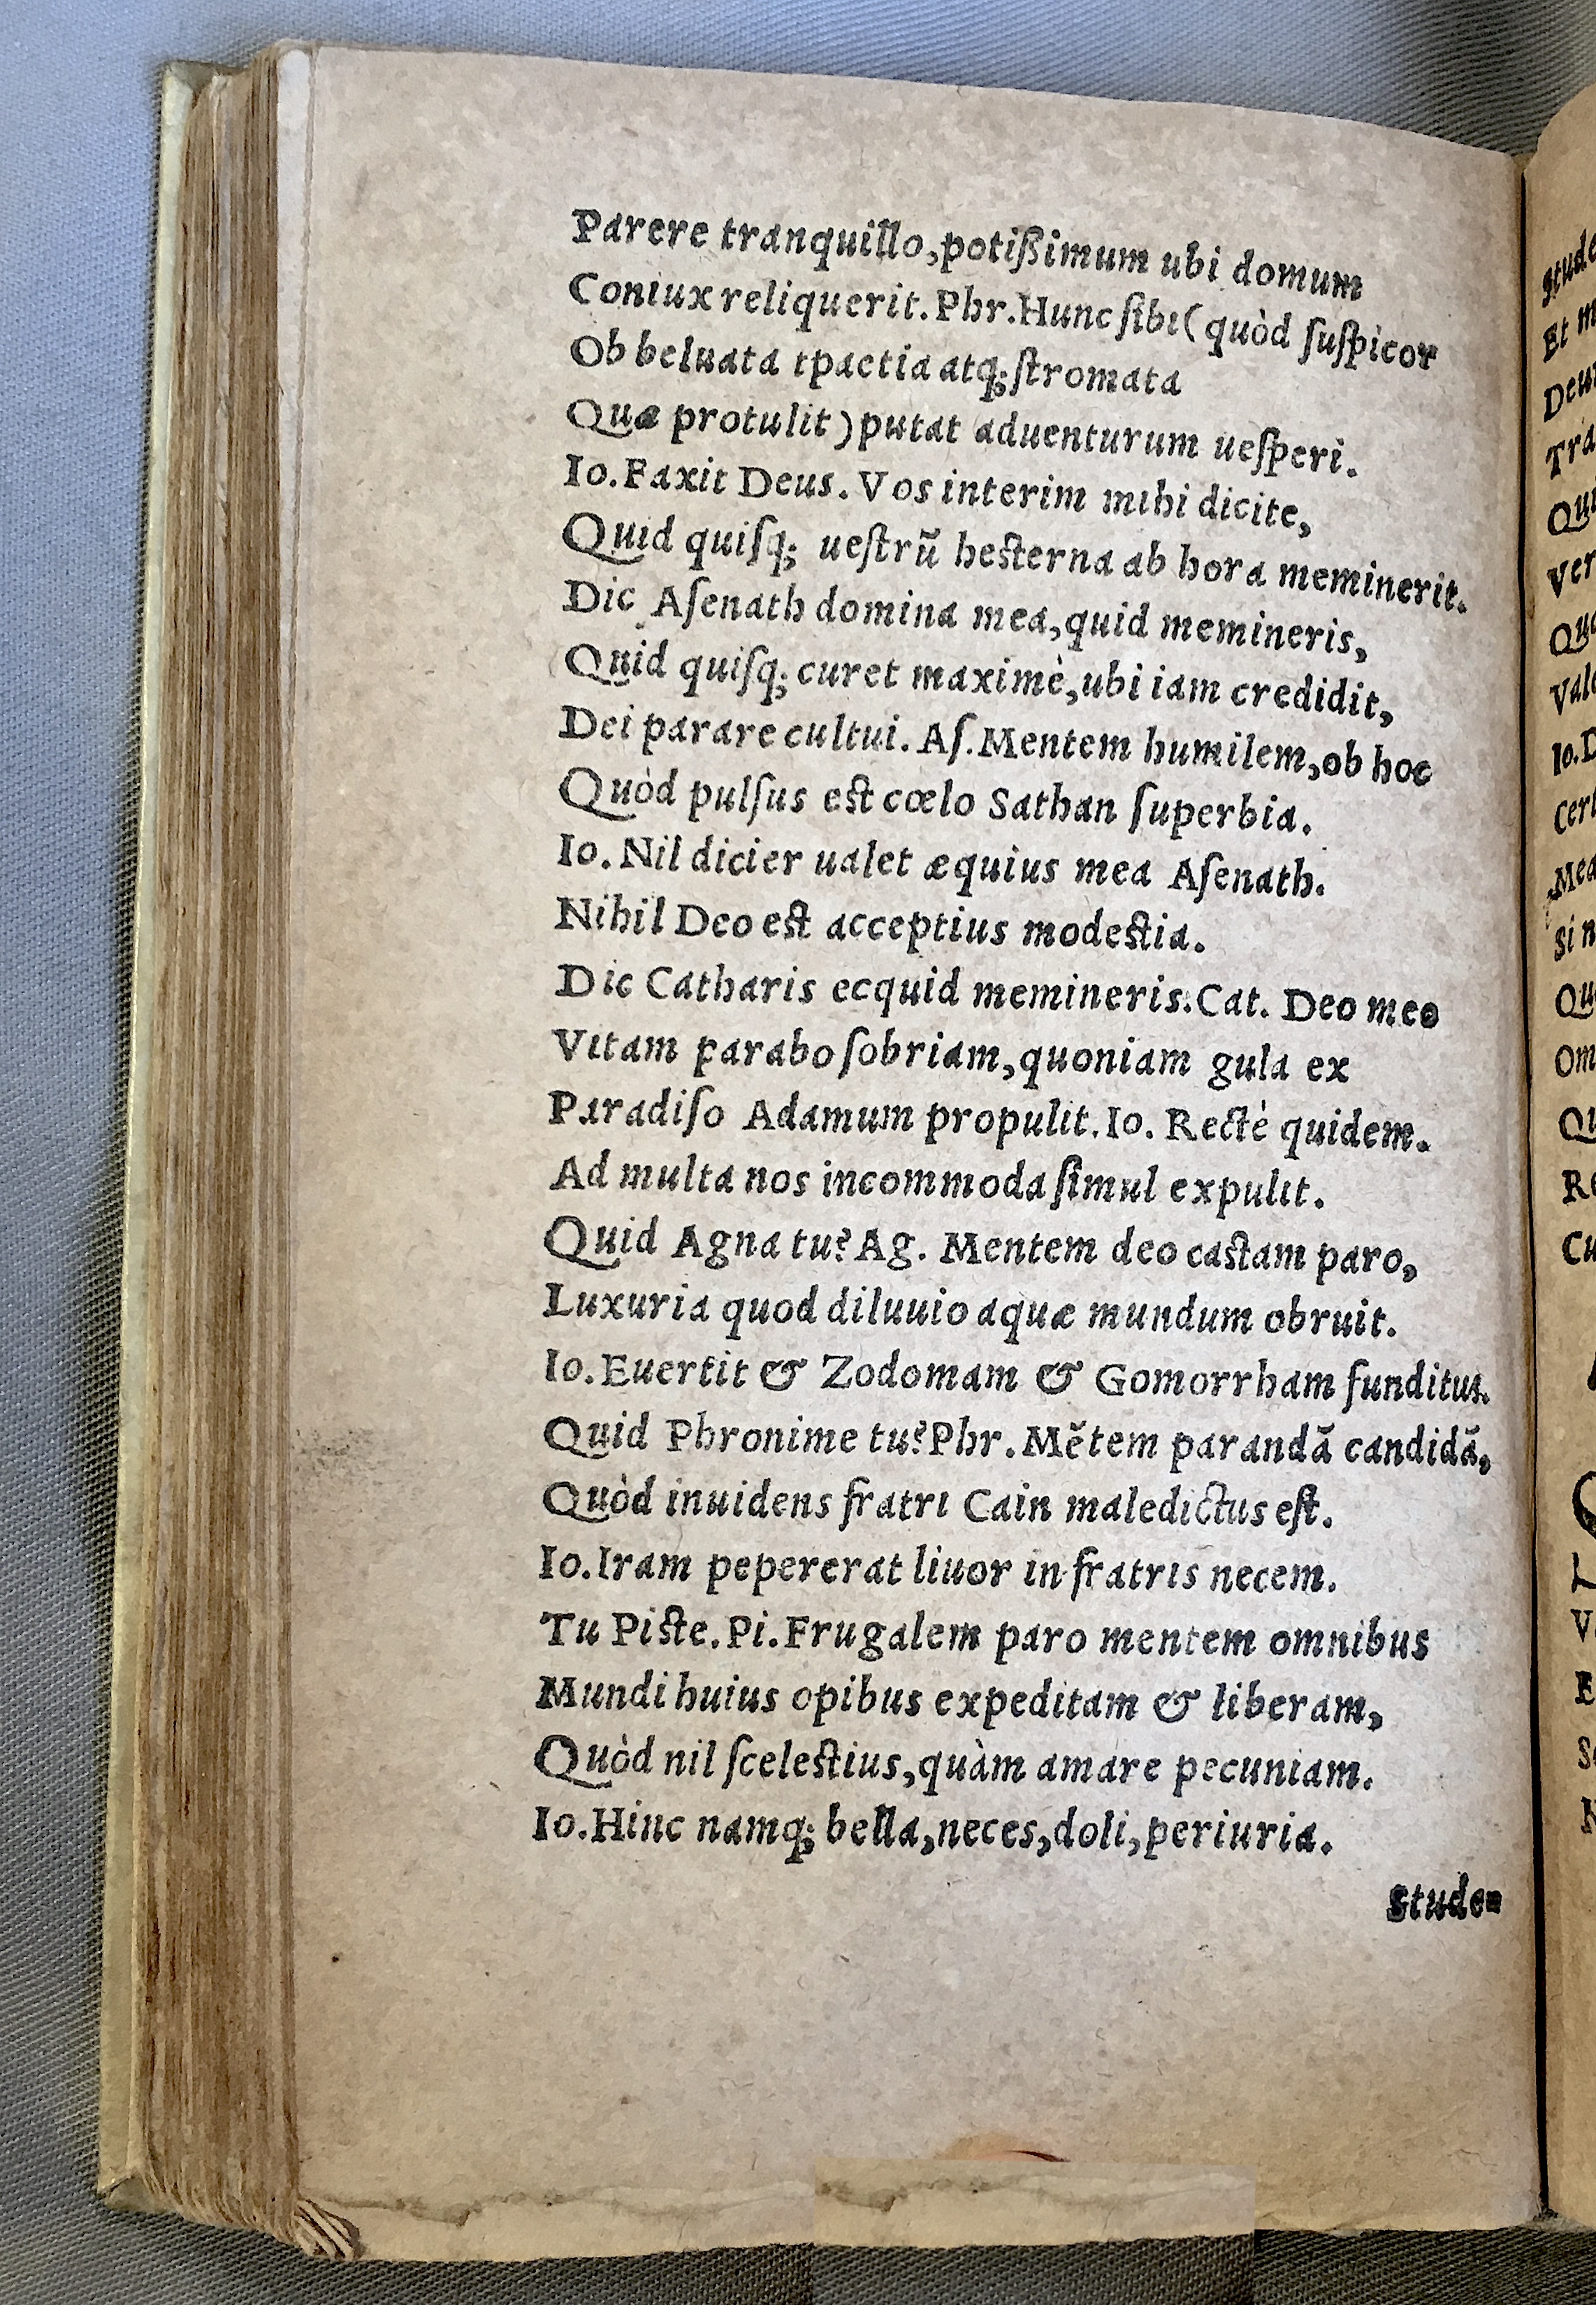 Parere tranquillo, potißimum ubi domum
Coniux reliquerit. Phr. Hunc ſibi (quòd ſuſpicor
Ob beluata tpaetia atq; ſtromata
Quæ protulit) putat aduenturum ueſperi.
Io. Faxit Deus. Vos interim mihi dicite,
Quid quiſq; ueſtrũ heſterna ab hora meminerit.
Dic Aſenath domina mea, quid memineris,
Quid quiſq; curet maximè, ubi iam credidit,
Dei parare cultui. Aſ. Mentem humilem, ob hoc
Quòd pulſus eſt cœlo Sathan ſuperbia.
Io. Nil dicier ualet æquius mea Aſenath.
Nihil Deo eſt acceptius modeſtia.
Dic Catharis ecquid memineris. Cat. Deo meo
Vitam parabo ſobriam, quoniam gula ex
Paradiſo Adamum propulit. Io. Rectè quidem.
Ad multa nos incommoda ſimul expulit.
Quid Agna tu? Ag. Mentem deo caſtam paro,
Luxuria quod diluuio aquæ mundum obruit.
Io. Euertit & Zodomam & Gomorrham funditus.
Quid Phronime tu? Phr. Mẽtem parandã candidã,
Quòd inuidens fratri Cain maledictus eſt.
Io. Iram pepererat liuor in fratris necem.
Tu Piſte. Pi. Frugalem paro mentem omnibus
Mundi huius opibus expeditam & liberam,
Quòd nil ſceleſtius, quàm amare pecuniam.
Io. Hinc namq; bella, neces, doli, periuria.
Stude-